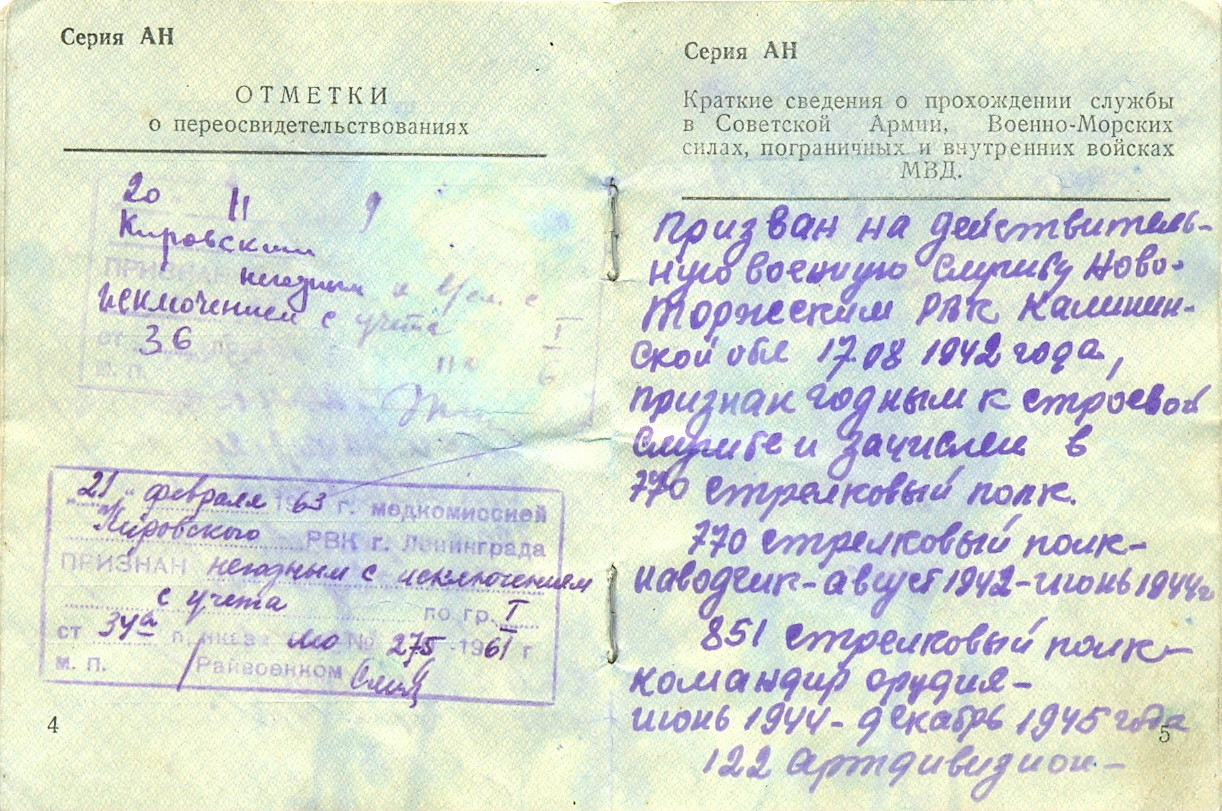 Серия АН
ОТМЕТКИ
о переосвидетельствованиях
20 11 9
Кировским
ПРИЗНАН негодным
исключением с учета
от 36
м. п.
"21" февраля 1963 г. медкомиссией
Кировского РВК г. Ленинграда
ПРИЗНАН негодным с исключением
с учета по гр. I
ст 34а приказа МО № 275 -1961 г
м. п. Райвоенком
4
Серия АН
Краткие сведения о прохождении службы
в Советской Армии, Военно-Морских
силах, пограничных и внутренних войсках
МВД.
Призван на действитель-
ную военную службу Ново-
Торжским РВК Калинин-
ской обл 17.08 1942 года,
признан годным к строевой
службе и зачислен в
770 стрелковый полк.
770 стрелковый полк-
наводчик-август 1942-июнь 1944г
851 стрелковый полк-
командир орудия-
июнь 1944- декабрь 1945 года
5
122 артдивизион-